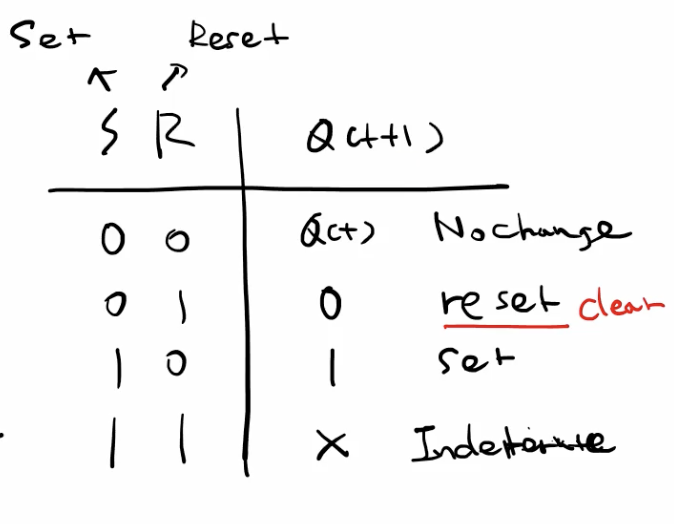 Set Reset
S R Q(t+1)
0 0 Q(t) No change
0 1 0 reset clear
1 0 1 set
1 1 X Indeterminate